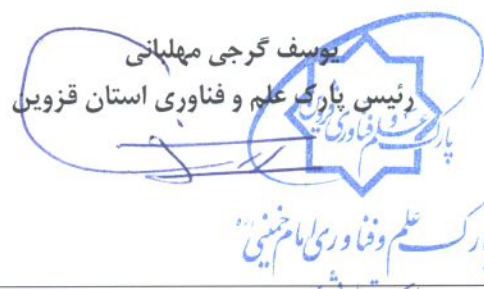 یوسف گرجی مهلبانی
رئیس پارک علم و فناوری استان قزوین
پارک علم و فناوری قزوین
پارک علم و فناوری امام خمینی